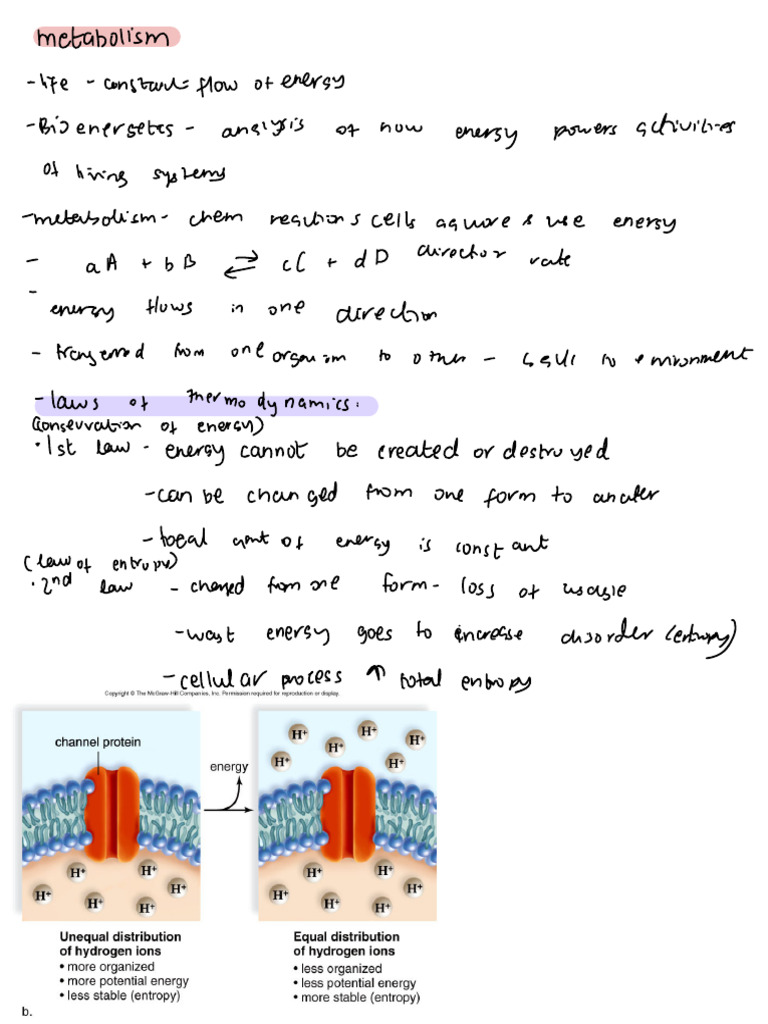 metabolism
- life - constant flow of energy
- Bioenergetes - analysis of how energy powers activities
of living systems
- metabolism - chem reactions cells aquore & use energy
- aA + bB ⇌ cC + dD direction rate
- energy flows in one direction
- transferred from one organism to other - to environment
- laws of thermodynamics:
(conservation of energy)
• 1st law - energy cannot be created or destroyed
- can be changed from one form to anater
- total amt of energy is constant
(law of entropy)
• 2nd law - changed from one form - loss of usable
- wast energy goes to increase disorder (entropy)
- cellular process ↑ total entropy
Copyright © The McGraw-Hill Companies, Inc. Permission required for reproduction or display.
channel protein
energy
H+ H+ H+ H+ H+
H+ H+ H+ H+ H+ H+
H+ H+ H+ H+ H+ H+
Unequal distribution
of hydrogen ions
• more organized
• more potential energy
• less stable (entropy)
Equal distribution
of hydrogen ions
• less organized
• less potential energy
• more stable (entropy)
b.